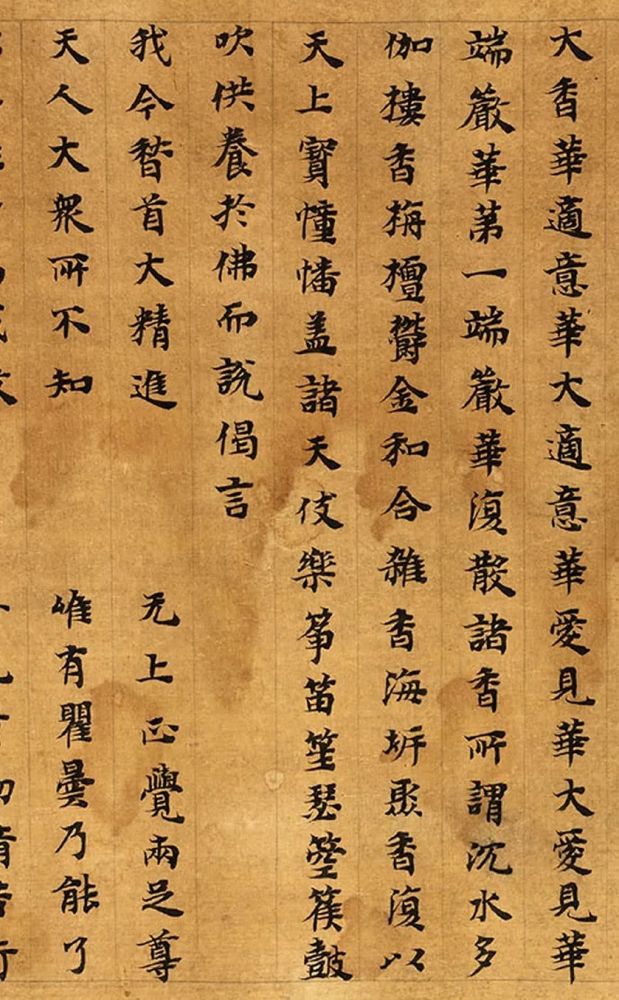 大香華適意華大適意華愛見華大愛見華
端嚴華第一端嚴華復散諸香所謂沈水多
伽摟香栴檀欝金和合雜香海埿聚香復以
天上寳憧幡盖諸天伎樂筝笛笙瑟箜篌皷
吹供養於佛而說偈言
我今嵇首大精進 无上正覺兩足尊
天人大衆所不知 唯有瞿曇乃能了